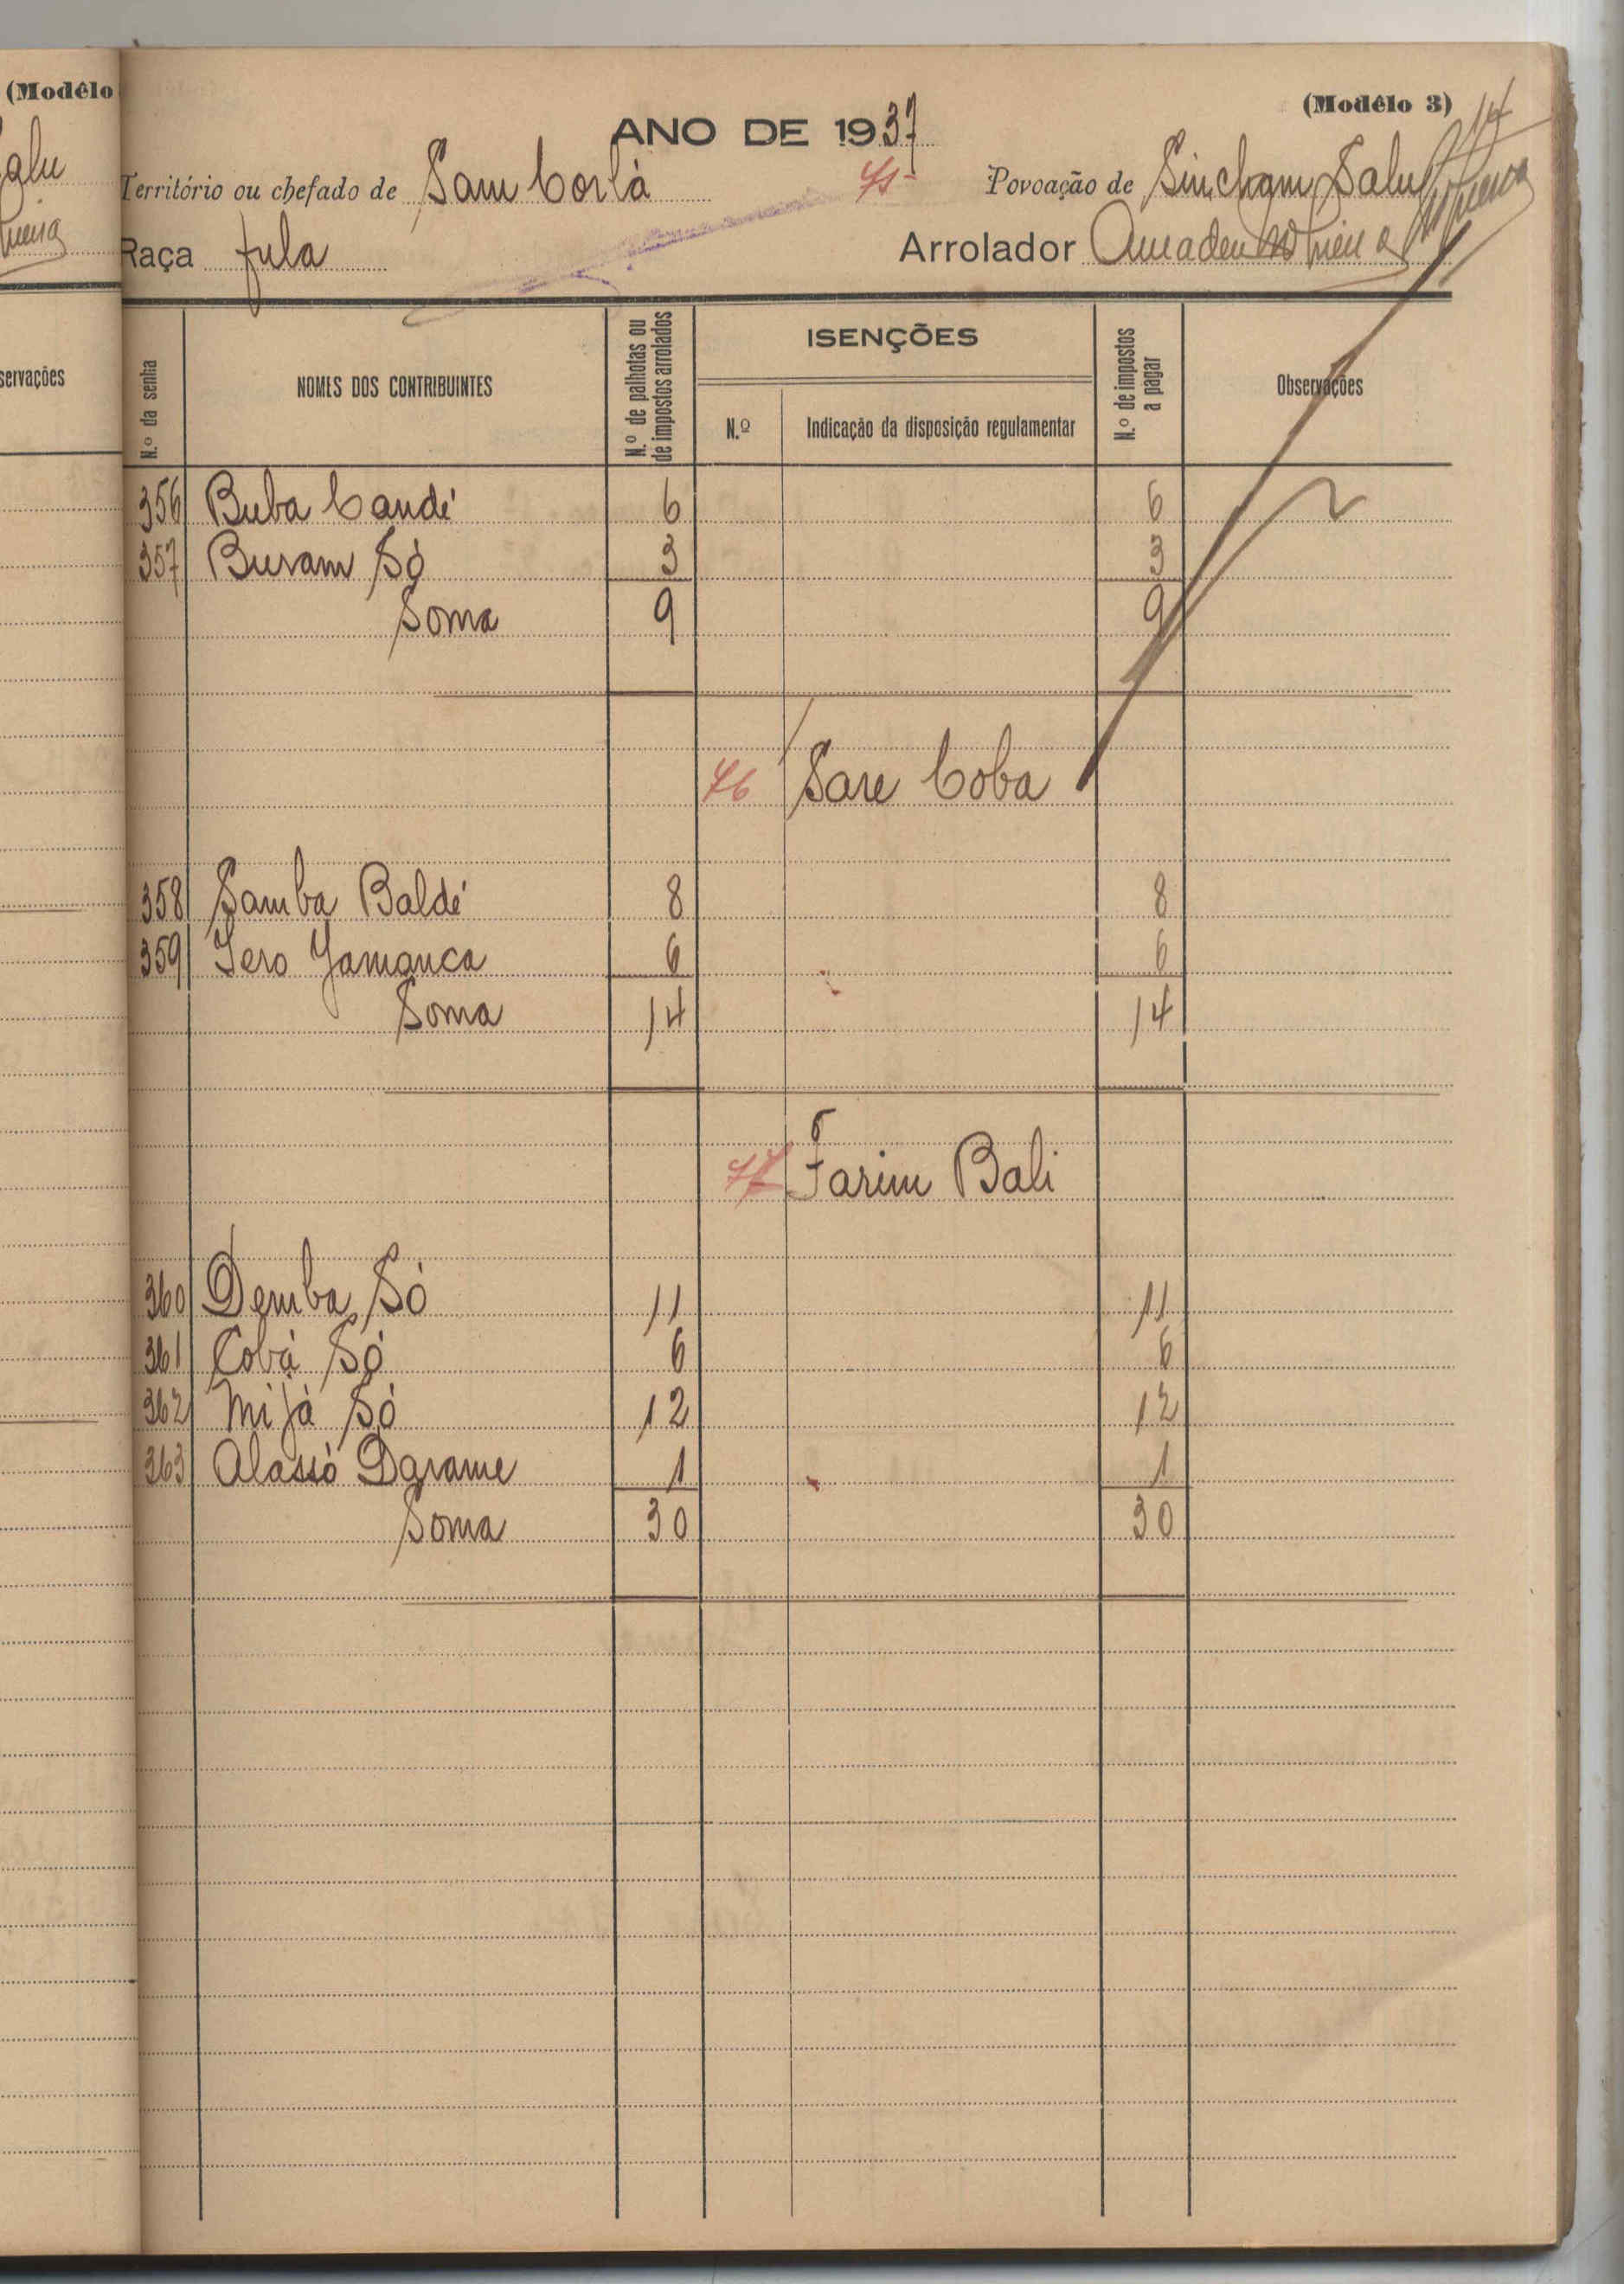 (Modêlo
alu
(Modêlo 3)
14
ANO DE 1937
Território ou chefado de Sam Corlá
Povoação de Sincham Salu
Raça fula
Arrolador Amadeu
servações
N.º da senha
NOMES DOS CONTRIBUINTES
N.º de palhotas ou de impostos arrolados
ISENÇÕES
N.º
Indicação da disposição regulamentar
N.º de impostos a pagar
Observações
356 Buba Candé 6 6
357 Buram Só 3 3
Soma 9 9
46 Sare Coba
358 Samba Baldé 8 8
359 Iero Jamanca 6 6
Soma 14 14
47 Farim Bali
360 Demba Só 11 11
361 Cobá Só 6 6
362 Mijá Só 12 12
363 Alassó Darame 1 1
Soma 30 30